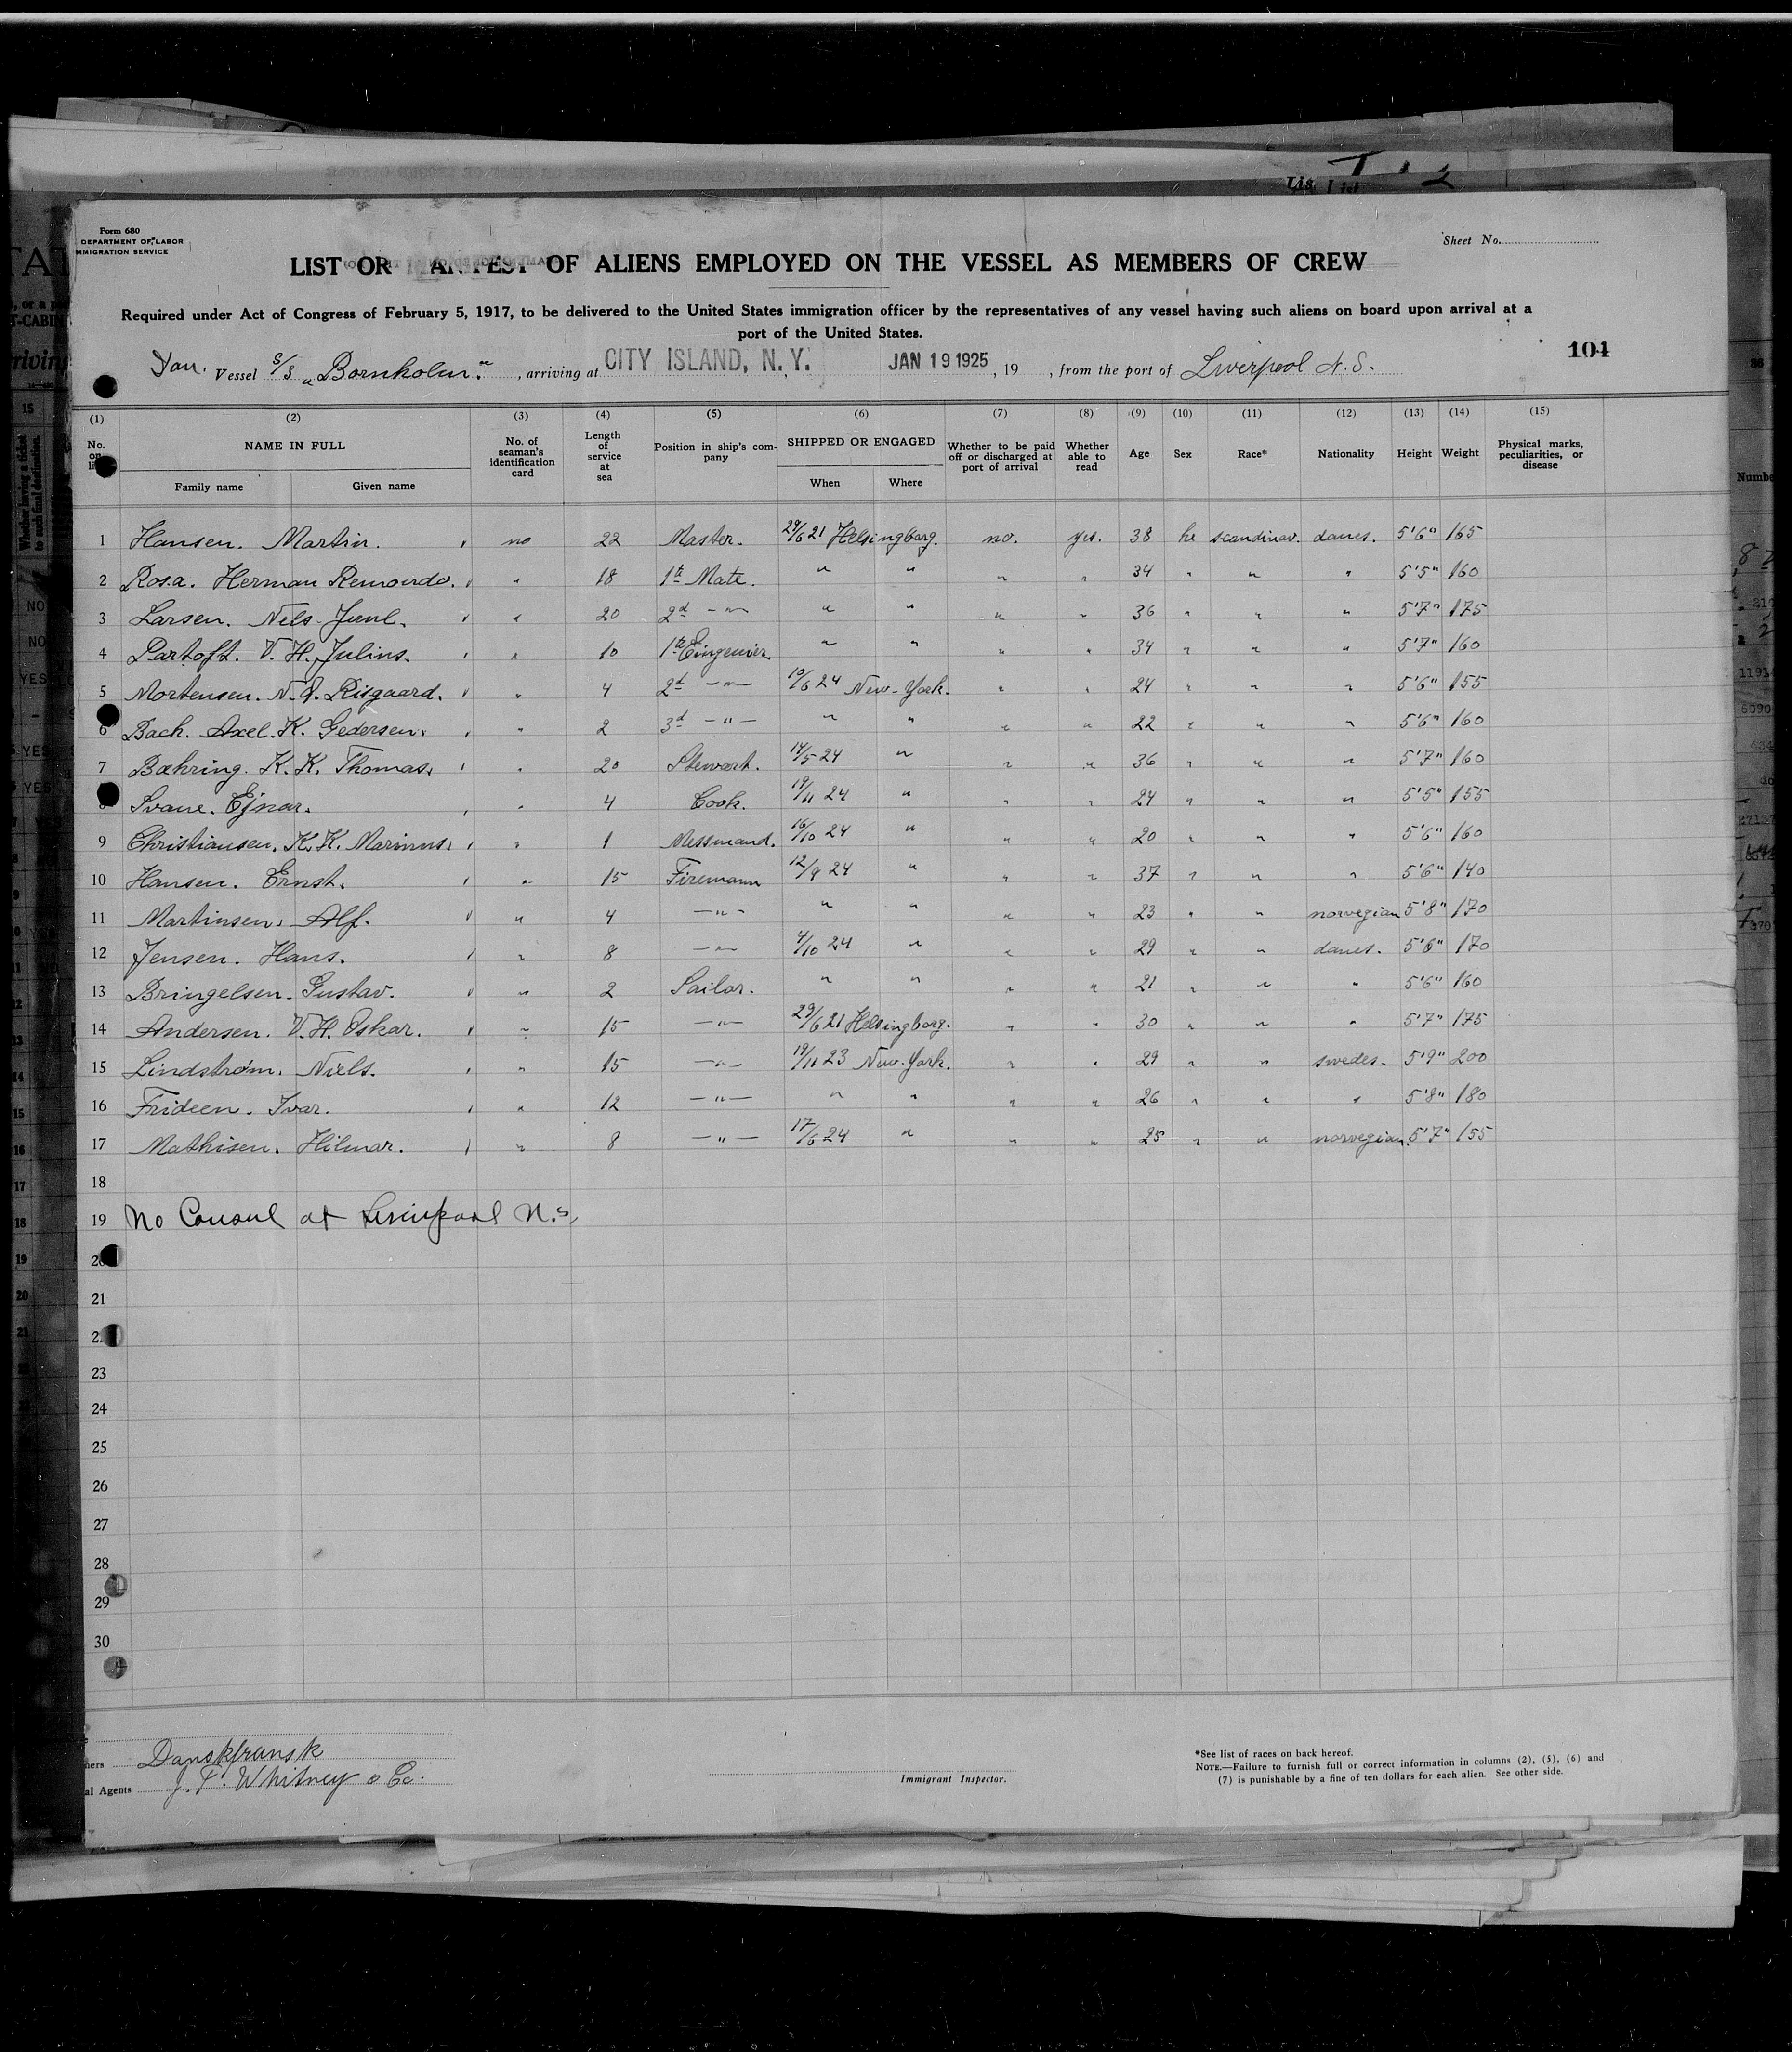 Form 680
DEPARTMENT OF LABOR
IMMIGRATION SERVICE
Sheet No.
LIST OR MANIFEST OF ALIENS EMPLOYED ON THE VESSEL AS MEMBERS OF CREW
Required under Act of Congress of February 5, 1917, to be delivered to the United States immigration officer by the representatives of any vessel having such aliens on board upon arrival at a
port of the United States.
104
Dan. Vessel S/S „Bornholm“, arriving at CITY ISLAND, N.Y. JAN 19 1925, 19 , from the port of Liverpool N.S.
(1) (2) (3) (4) (5) (6) (7) (8) (9) (10) (11) (12) (13) (14) (15)
No. on list NAME IN FULL Family name Given name No. of seaman's identification card Length of service at sea Position in ship's company SHIPPED OR ENGAGED When Where Whether to be paid off or discharged at port of arrival Whether able to read Age Sex Race* Nationality Height Weight Physical marks, peculiarities, or disease
1 Hansen. Martin. no 22 Master. 29/6 21 Helsingborg. no. yes. 38 he scandinav. danes. 5'6" 165
2 Rosa. Herman " 18 1te Mate. " " " " 34 " " " 5'5" 160
3 Larsen. Nels Juul. " 20 2d -"- " " " " 36 " " " 5'7" 175
4 Partoft. V. H. Julius. " 10 1te Eingenier " " " " 34 " " " 5'7" 160
5 Mortensen. N. Risgaard. " 4 2d -"- 10/6 24 New-York. " " 24 " " " 5'6" 155
6 Bach. Axel. K. Gedersen. " 2 3d -"- " " " " 22 " " " 5'6" 160
7 Bæhring. K. K. Thomas. " 20 Stewart. 14/5 24 " " " 36 " " " 5'7" 160
8 Svane. Ejnar. " 4 Cook. 19/11 24 " " " 24 " " " 5'5" 155
9 Christiansen. K. K. Marinus. " 1 Messmand. 16/10 24 " " " 20 " " " 5'6" 160
10 Hansen. Ernst. " 15 Firemann 12/9 24 " " " 37 " " " 5'6" 140
11 Martinsen. Alf. " 4 -"- " " " " 23 " " norvegian 5'8" 170
12 Jensen. Hans. " 8 -"- 4/10 24 " " " 29 " " danes. 5'6" 170
13 Bringelsen. Gustav. " 2 Sailor. " " " " 21 " " " 5'6" 160
14 Andersen. V. H. Oskar. " 15 -"- 29/6 21 Helsingborg. " " 30 " " " 5'7" 175
15 Lindstrøm. Niels. " 15 -"- 19/11 23 New-York. " " 29 " " swedes. 5'9" 200
16 Frideen. Ivar. " 12 -"- " " " " 26 " " " 5'8" 180
17 Mathisen. Hilmar. " 8 -"- 17/6 24 " " " 25 " " norvegian. 5'7" 155
18
19 No Consul at Liverpool N.S.
20
21
22
23
24
25
26
27
28
29
30
Danskfransk
al Agents J. F. Whitney & Co.
Immigrant Inspector.
*See list of races on back hereof.
NOTE.—Failure to furnish full or correct information in columns (2), (5), (6) and
(7) is punishable by a fine of ten dollars for each alien. See other side.